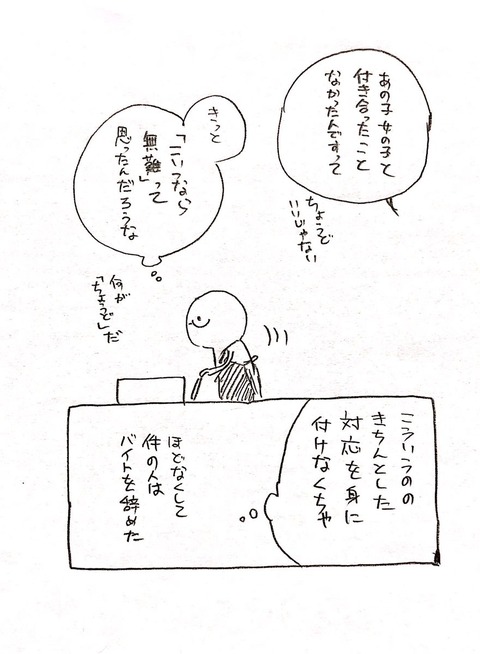 あの子女の子と
付き合ったこと
なかったんですって
ちょうど
いいじゃない
きっと
「こいつなら
無難」って
思ったんだろうな
何が
「ちょうど」だ
こういうのの
きちんとした
対応を身に
付けなくちゃ
ほどなくして
件の人は
バイトを辞めた